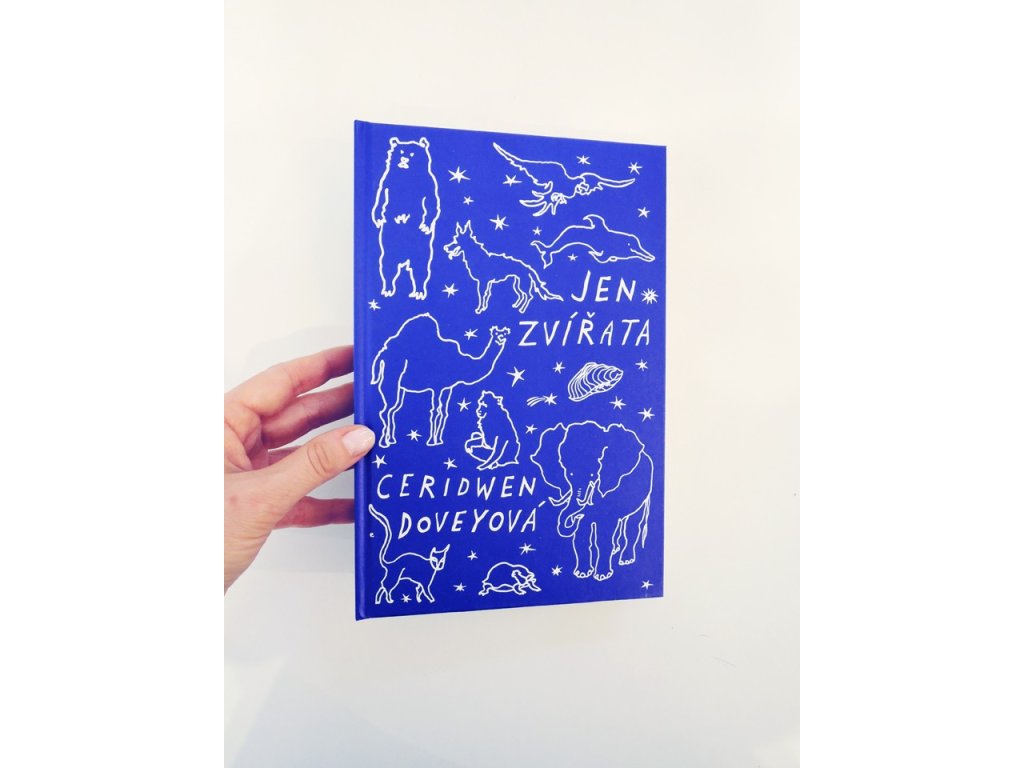 JEN
ZVÍŘATA
CERIDWEN
DOVEYOVÁ